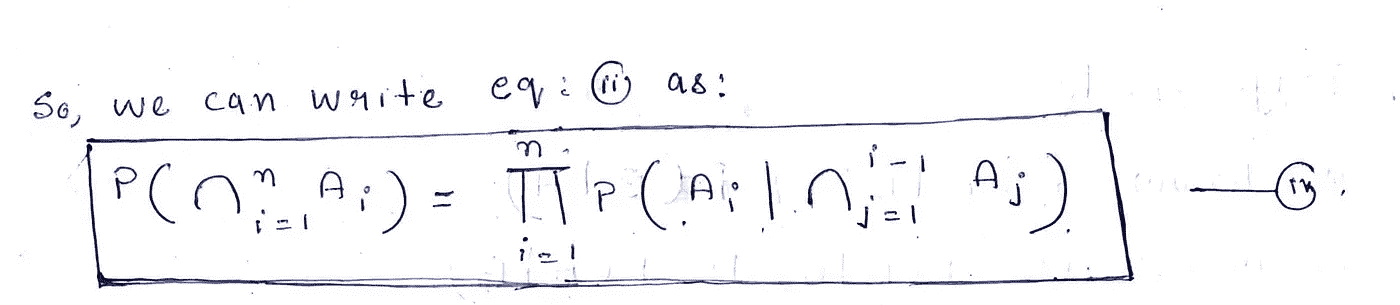 So, we can write eq: (ii) as:
P(∩ⁿᵢ₌₁ Aᵢ) = ∏ⁿᵢ₌₁ P(Aᵢ | ∩ⁱ⁻¹ⱼ₌₁ Aⱼ) —— (iv).